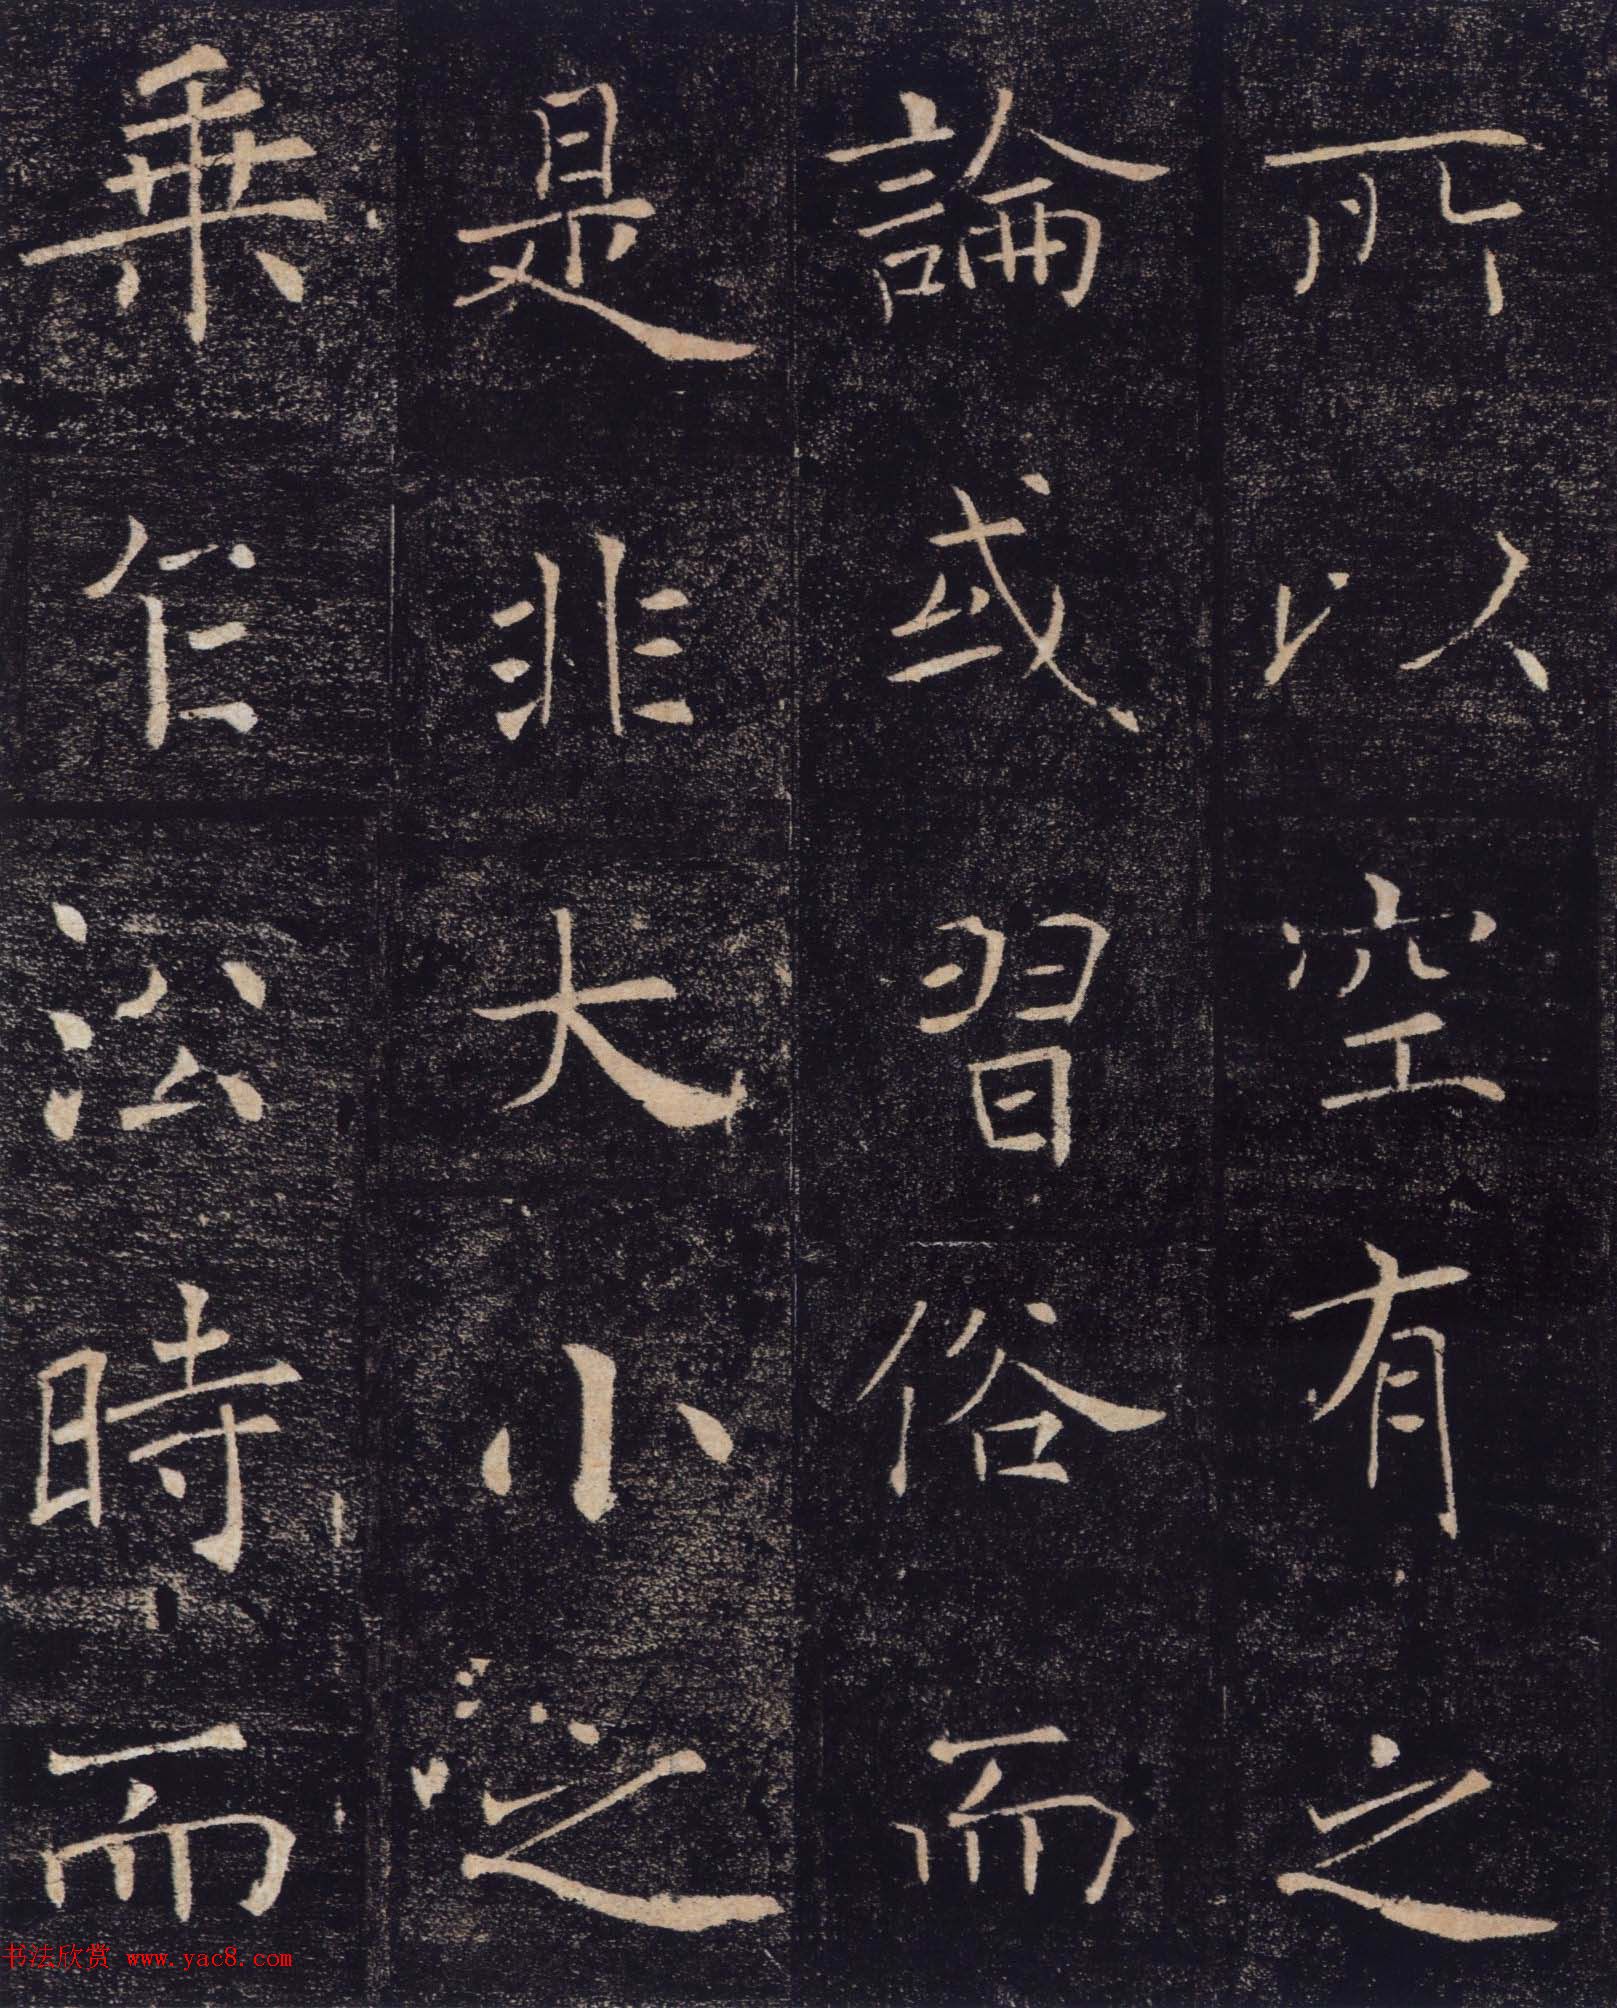 所以空有之
論或習俗而
是非大小之
乗乍㳒時而
书法欣赏 www.yac8.com